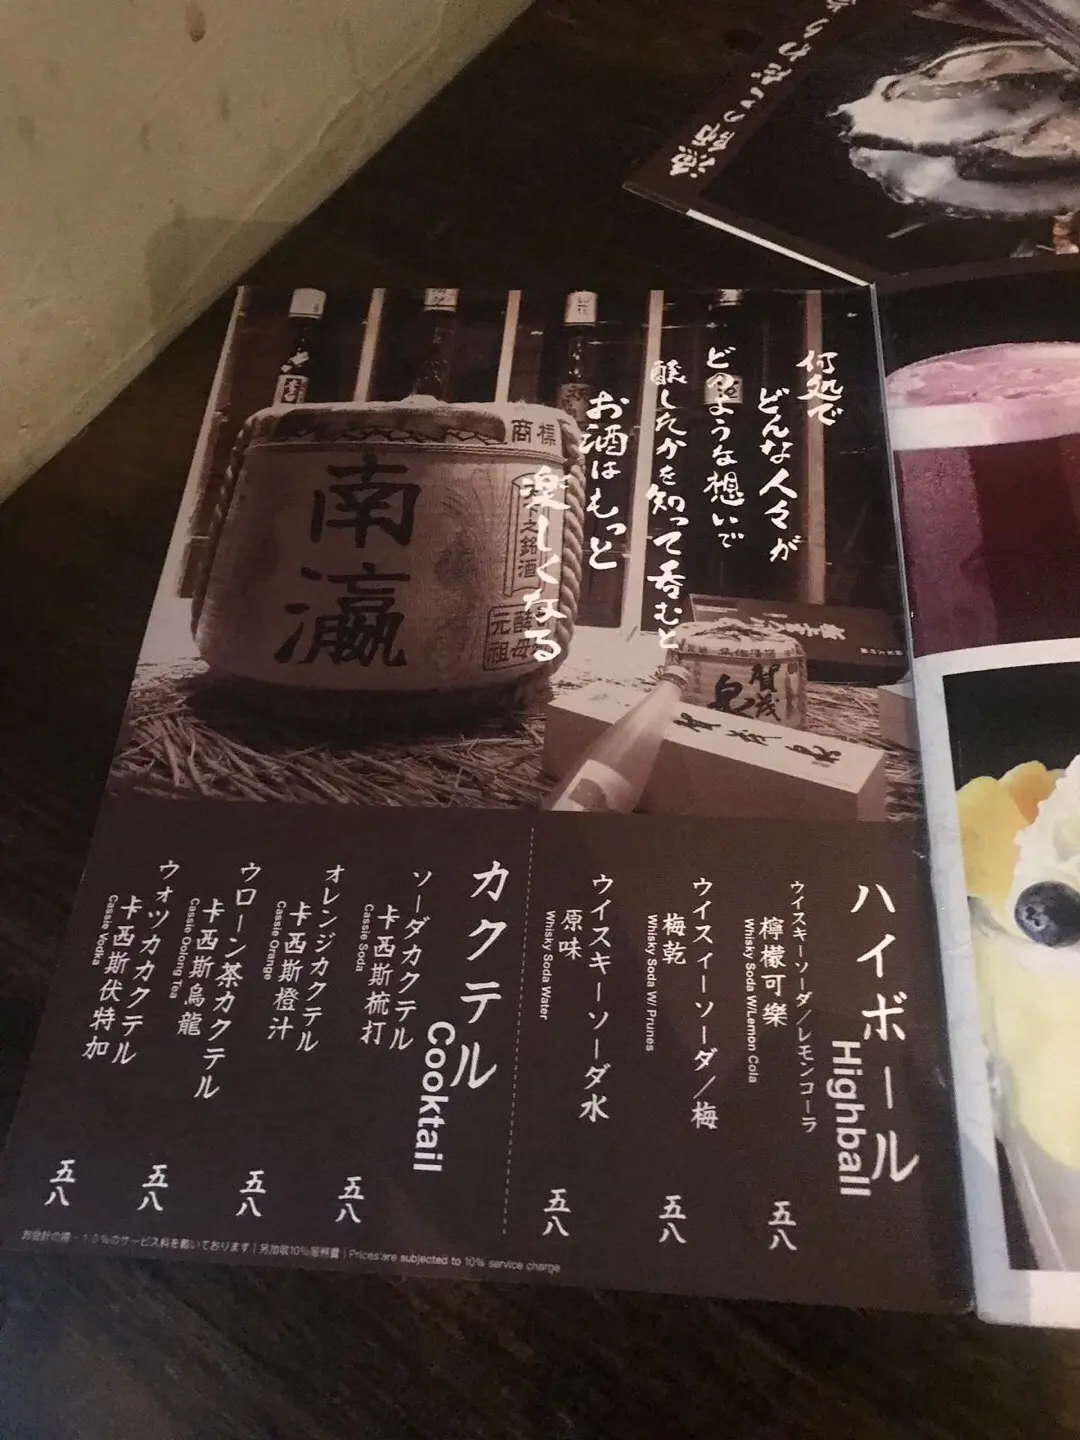 何処で
どんな人々が
どのような想いで
醸したかを知って呑むと
お酒はもっと
楽しくなる
商標
南瀛
之銘酒
酵母
元祖
賀茂
泉
ハイボール
Highball
ウイスキーソーダ/レモンコーラ
檸檬可樂
Whisky Soda W/Lemon Cola
五八
ウイスイーソーダ/梅
梅乾
Whisky Soda W/ Prunes
五八
ウイスキーソーダ水
原味
Whisky Soda Water
五八
カクテル
Cooktail
ソーダカクテル
卡西斯梳打
Cassie Soda
五八
オレンジカクテル
卡西斯橙汁
Cassie Orange
五八
ウローン茶カクテル
卡西斯烏龍
Cassie Oolong Tea
五八
ウォツカカクテル
卡西斯伏特加
Cassie Vodka
五八
お会計の際、10%のサービス料を戴いております | 另加收10%服務費 | Prices are subjected to 10% service charge